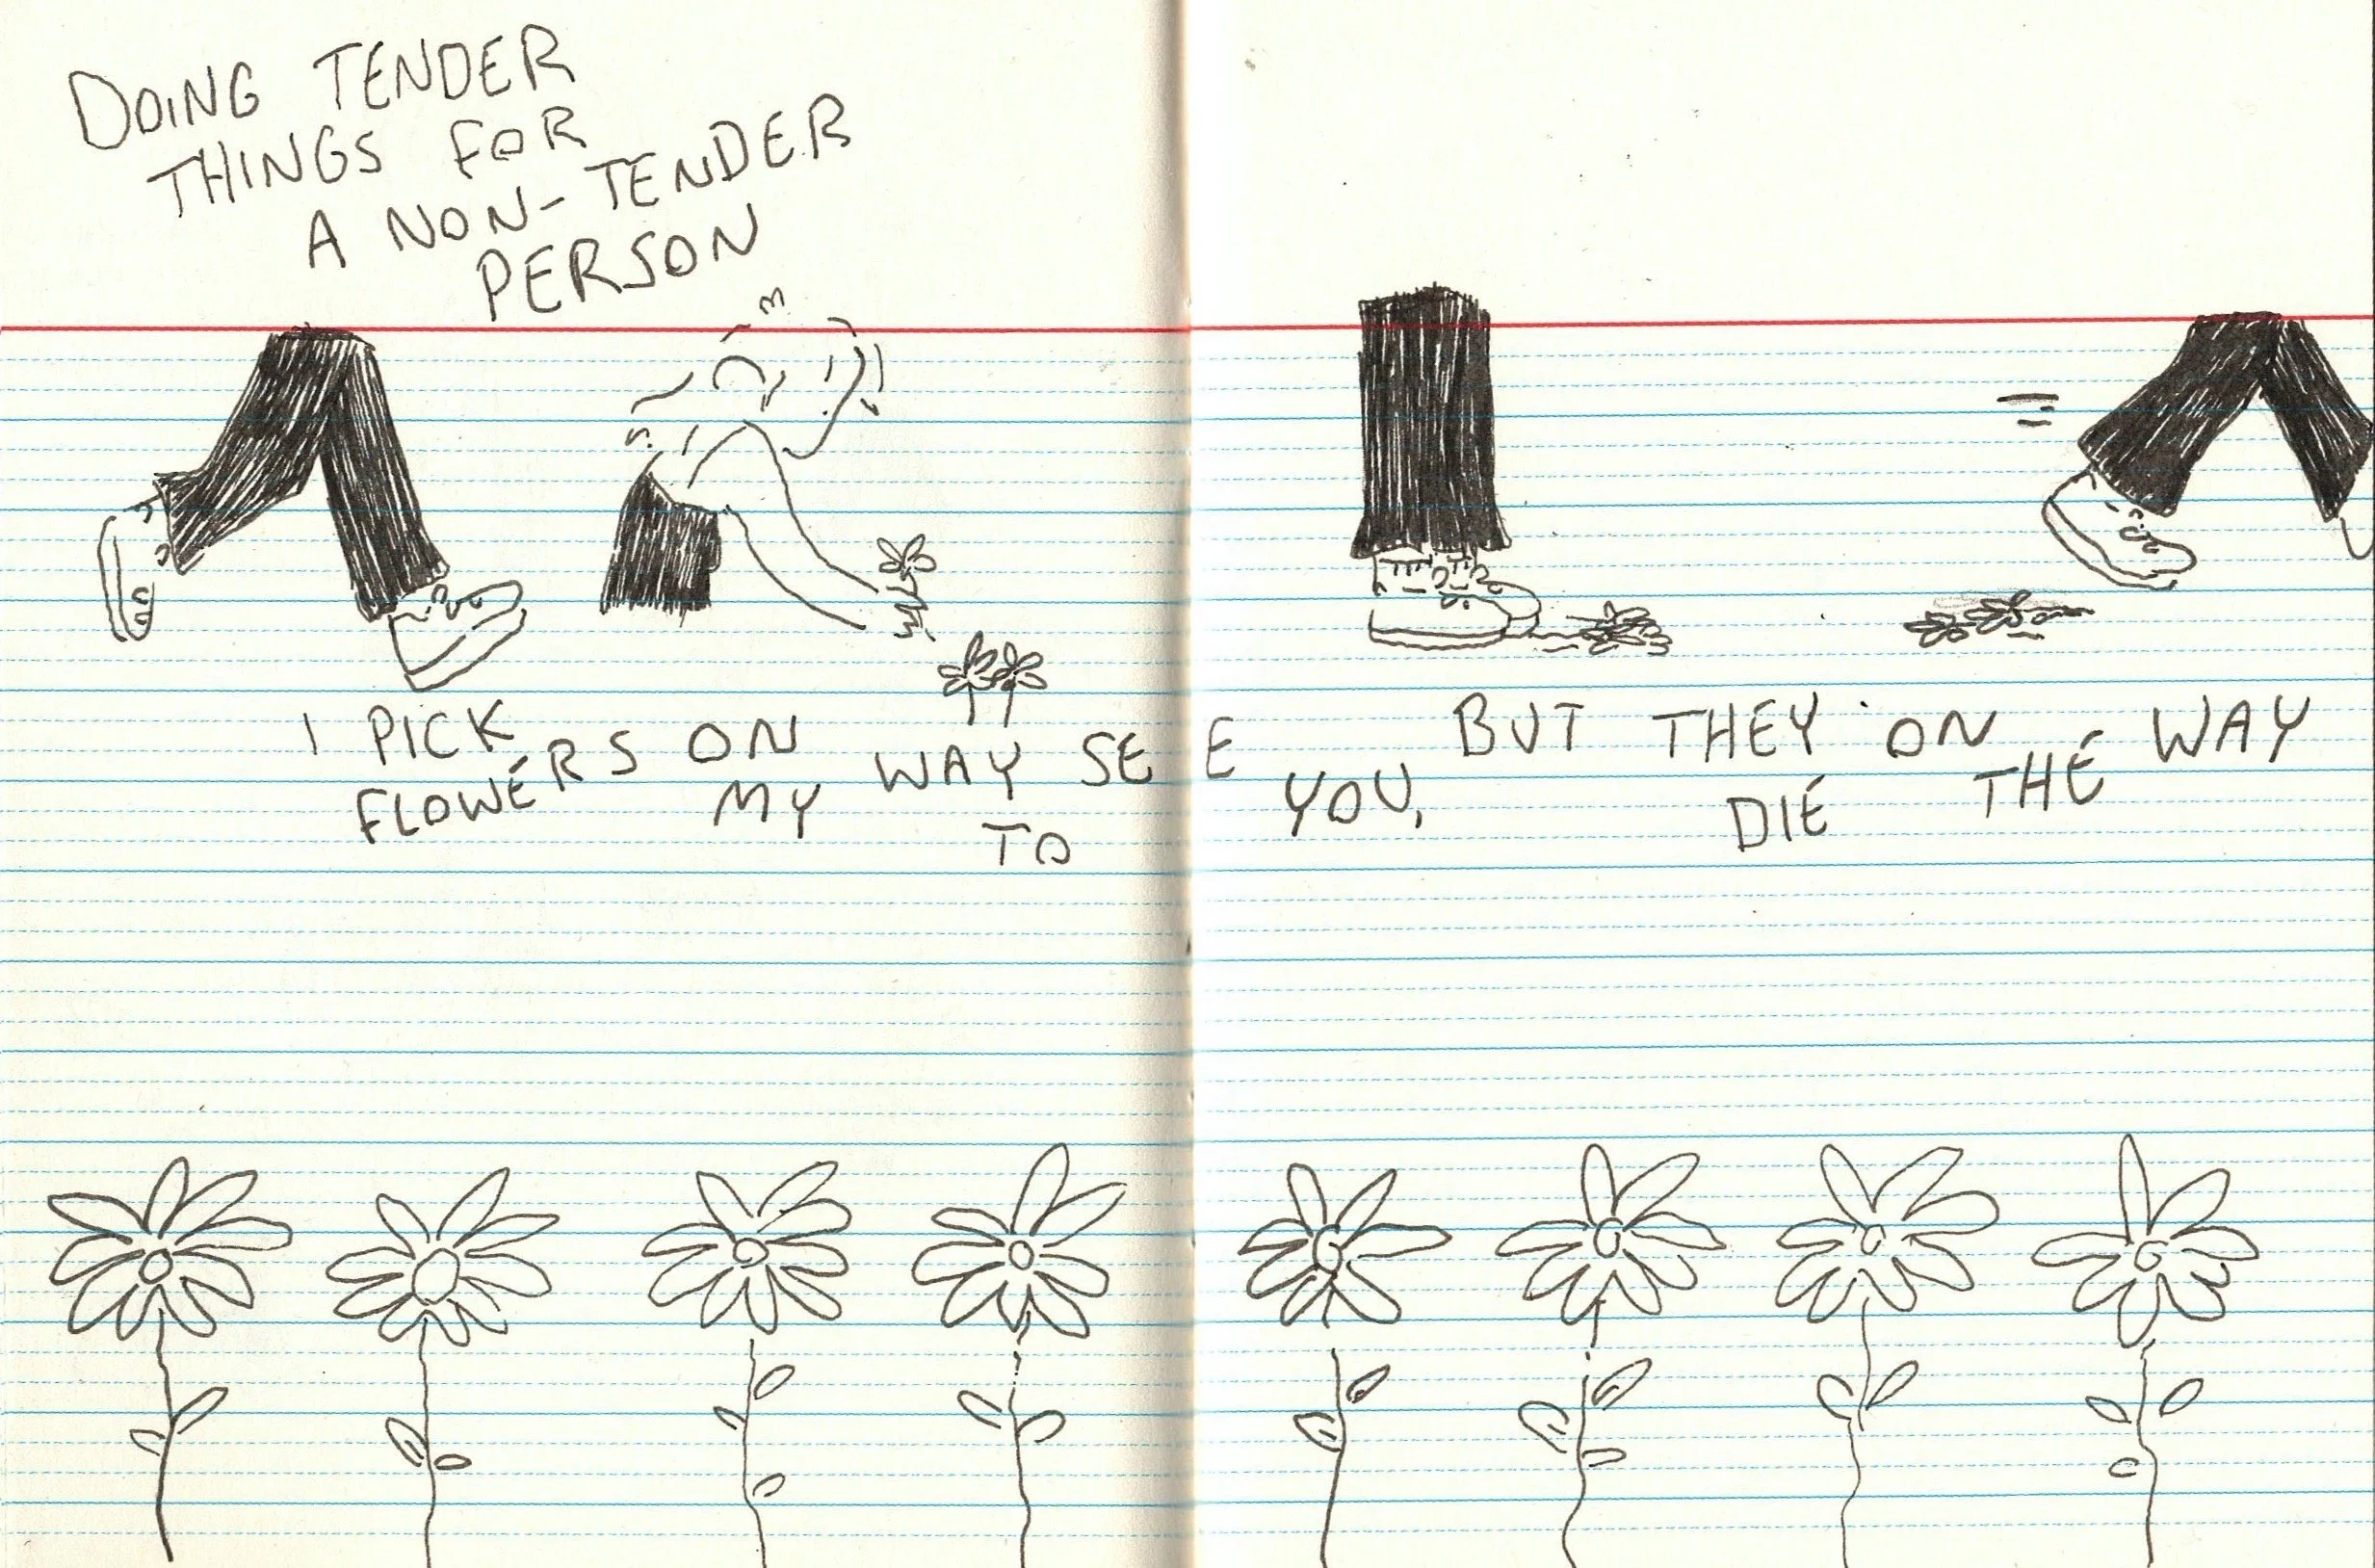 DOING TENDER
THINGS FOR
A NON-TENDER
PERSON
I PICK FLOWERS ON MY WAY TO SEE YOU, BUT THEY DIE ON THE WAY